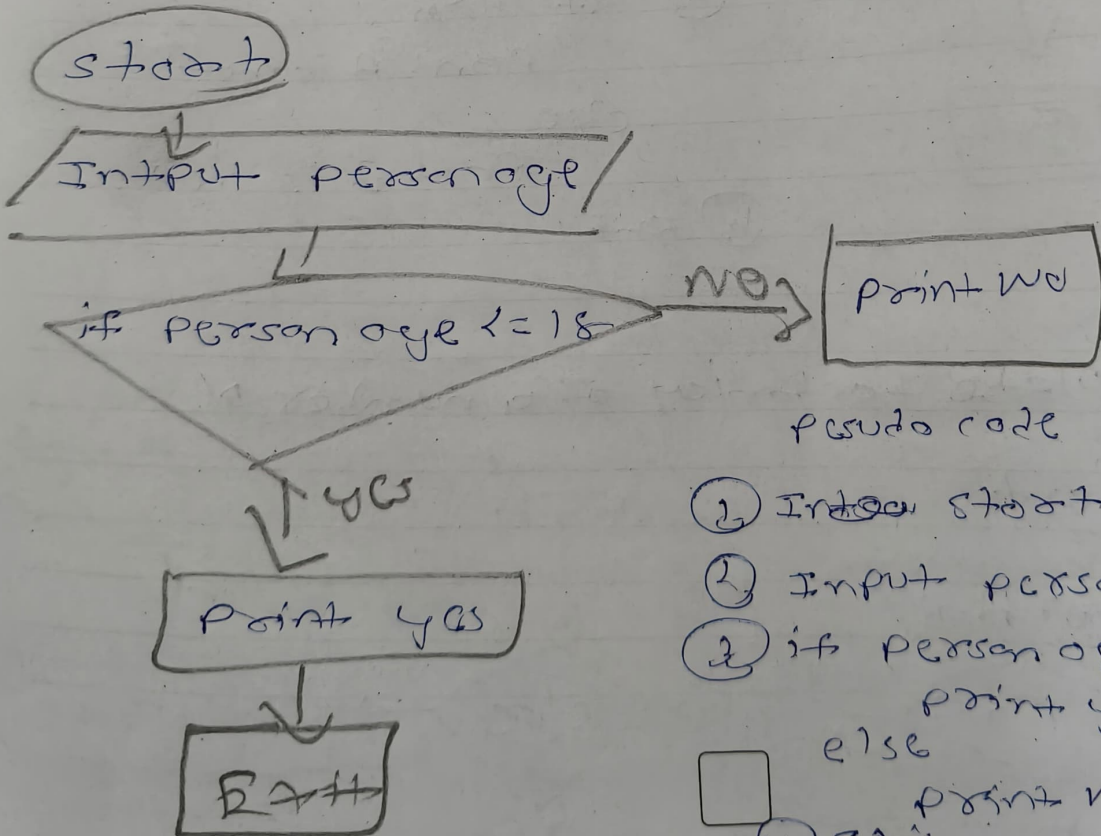 Start
Intput person age
if person age <= 18
NO
print NO
yes
print yes
Exit
pesudo code
1 start
2 Input
3 if person
print
else
print